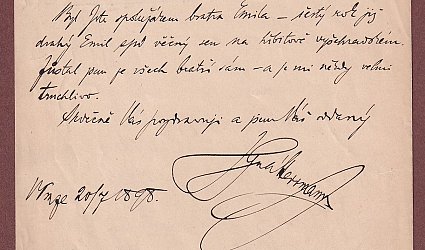 Byl jste spolužákem bratra Emila – šestý rok již
drahý Emil spí věčný sen na hřbitově vyšehradském.
Zůstal jsem ze všech bratří sám – a je mi někdy velmi
truchlivo.
Srdečně Vás pozdravuji a jsem Váš oddaný
Ignát Herrmann
V Praze 20/7 1898.